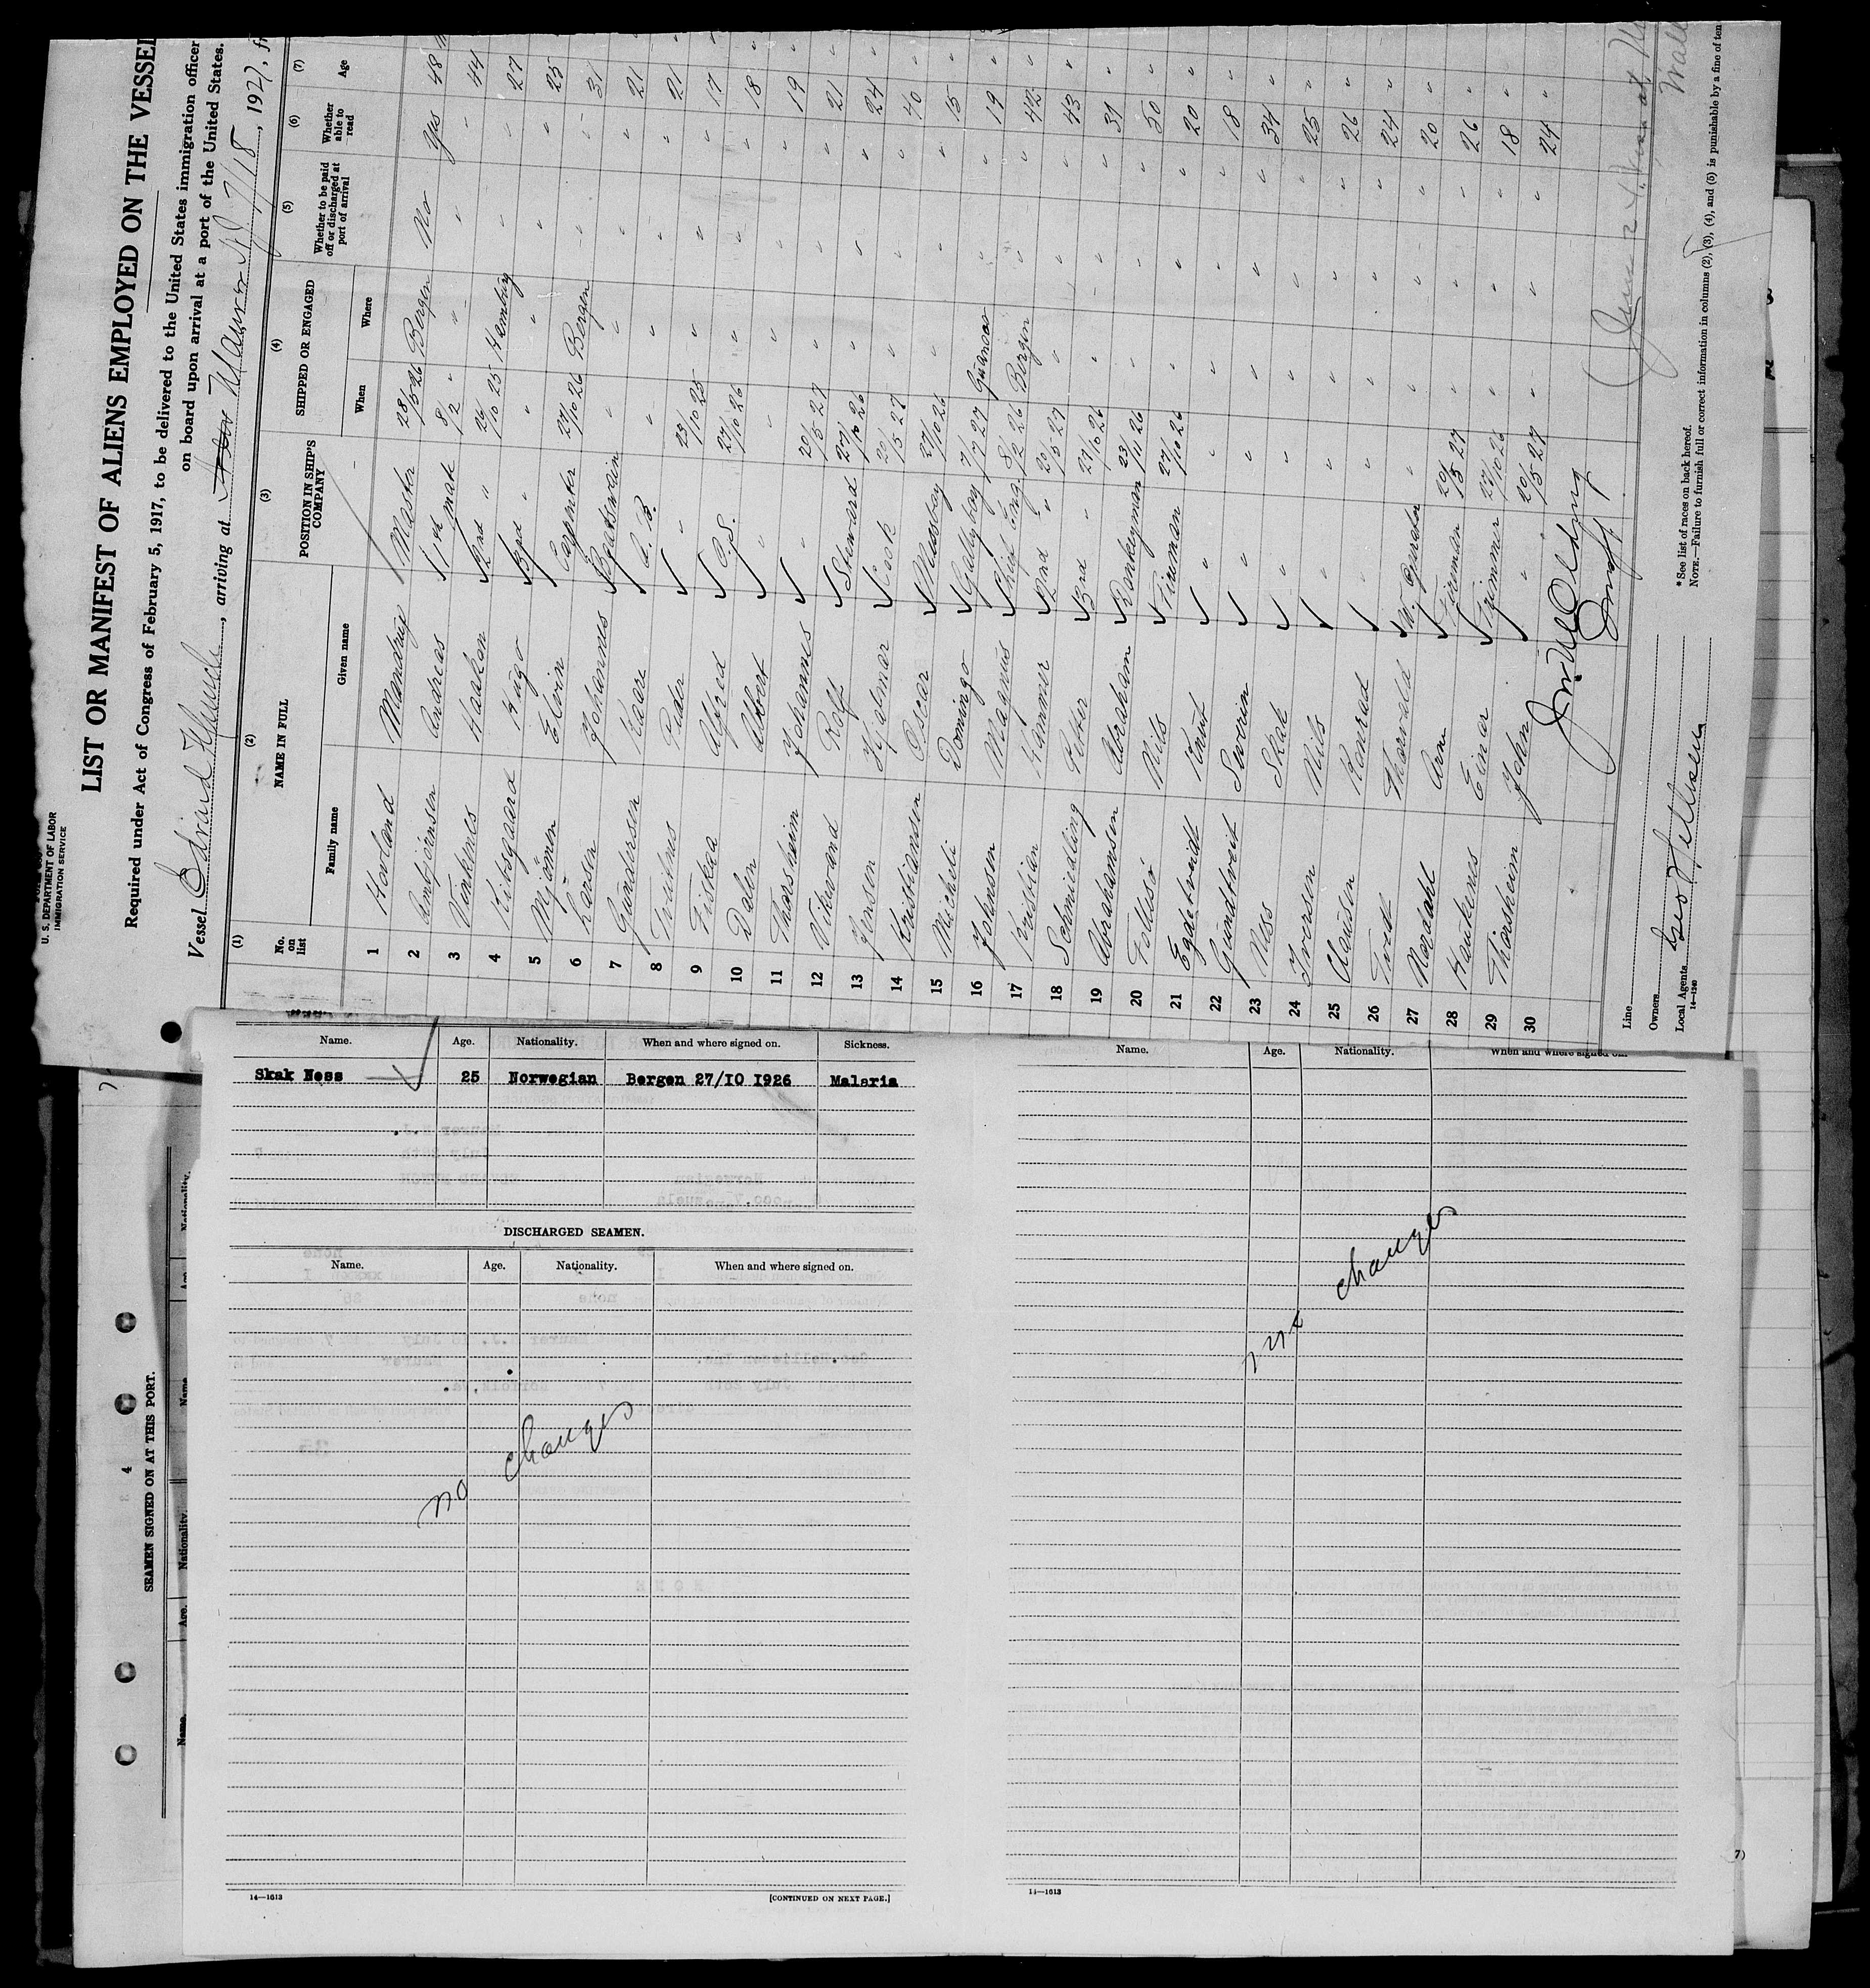 U. S. DEPARTMENT OF LABOR
IMMIGRATION SERVICE
LIST OR MANIFEST OF ALIENS EMPLOYED ON THE VESSEL
Required under Act of Congress of February 5, 1917, to be delivered to the United States immigration officer
on board upon arrival at a port of the United States.
Vessel Edvard Munch, arriving at Maurer N.J. 7/18, 1927, fr
(1) (2) (3) (4) (5) (6) (7)
No. on list NAME IN FULL POSITION IN SHIP'S COMPANY SHIPPED OR ENGAGED Whether to be paid off or discharged at port of arrival Whether able to read Age
Family name Given name When Where
1 Hovland Mandrup Master 28/5 26 Bergen No Yes 48
2 Ambjörnsen Andreas 1th mate 8/2 " " " 44
3 Vinkenes Haakon 2nd " 26/10 25 Hamburg " " 27
4 Kitsgaard Hugo 3rd " " " " " 25
5 Mjömen Elvin Carpenter 27/10 26 Bergen " " 31
6 Larsen Johannes Boatswain " " " " 21
7 Gundersen Kaare A. B. " " " " 21
8 Tveitnes Peder " 29/10 25 " " " 17
9 Fiskaa Alfred O.S. 27/10 26 " " " 18
10 Dalen Albert " " " " " 19
11 Thorsheim Johannes " 20/5 27 " " " 21
12 Vikevand Rolf Steward 27/10 26 " " " 24
13 Jensen Hjalmar Cook 20/5 27 " " " 40
14 Kristiansen Oscar Messboy 27/10 26 " " " 15
15 Micheli Domingo Galleyboy 7/7 27 Guanoco " " 19
16 Johnsen Magnus Chief Eng. 8/2 26 Bergen " " 42
17 Kristian Hammer 2nd " 20/5 27 " " " 43
18 Schmiedling Petter 3rd " 27/10 26 " " " 31
19 Abrahamsen Abraham Donkeyman 23/11 26 " " " 50
20 Follesö Nils Fireman 27/10 26 " " " 20
21 Egdetveidt Knut " " " " " 18
22 Gundtveit Sverin " " " " " 34
23 Ness Skak " " " " " 25
24 Iversen Nils " " " " " 26
25 Clausen Konrad " " " " " 24
26 Tvedt Thorvald " " " " 20
27 Nordahl Arne Fireman 20/5 27 " " " 26
28 Haukenes Einar Trimmer 27/10 26 " " " 18
29 Thorsheim John " 20/5 27 " " " 24
30
Line
Owners
Local Agents Geo Tellusen
14—1240
*See list of races on back hereof.
NOTE.—Failure to furnish full or correct information in columns (2), (3), (4), and (5) is punishable by a fine of ten
Name. Age. Nationality. When and where signed on. Sickness.
Skak Ness 25 Norwegian Bergen 27/10 1926 Malaria
DISCHARGED SEAMEN.
Name. Age. Nationality. When and where signed on.
no changes
14—1613
[CONTINUED ON NEXT PAGE.]
Name. Age. Nationality. When and where signed on.
changes
14—1613
4
SEAMEN SIGNED ON AT THIS PORT.
Name. Age. Nationality. Name. Age. Nationality.
7)